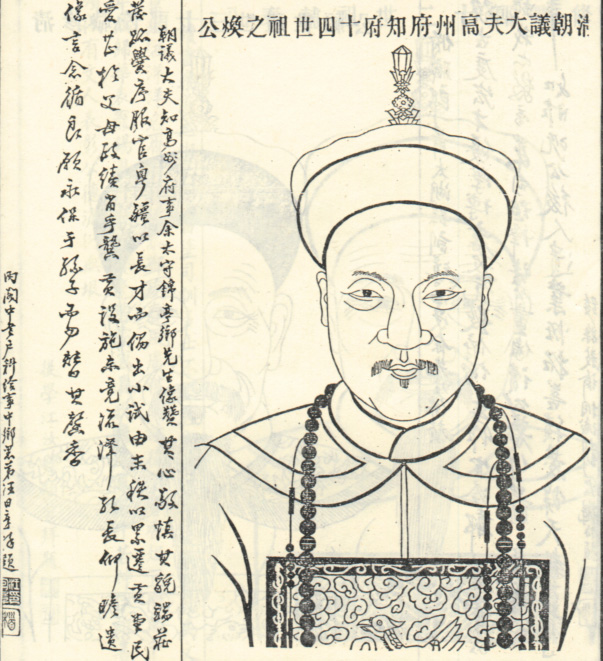 清朝議大夫高州府知府十四世祖之煥公
朝議大夫知高州府事余太守錦亭鄉先生像贊其心敬慎其貌端莊
發跡黌序服官粵疆以長才而小試由末秩以累遷吏民
愛於父母政績肖乎龔黃設施未竟流澤孔長仰瞻遺
像言念循良願永保乎孫子而勿替其馨香
內閣中書戶科給事中鄉愚弟汪日章拜題